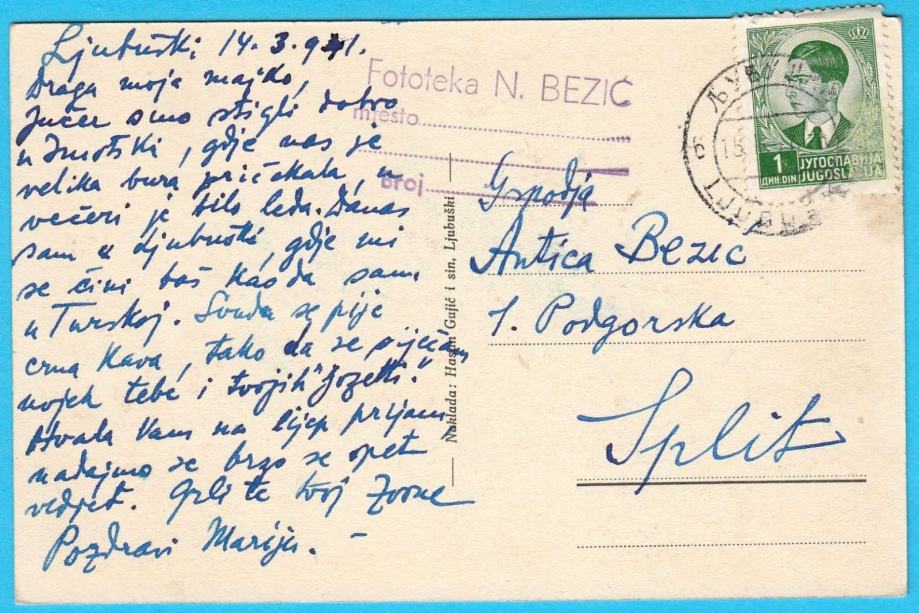 Ljubuški, 14.3.941.
Draga moja majko,
Jučer smo stigli dobro
u Imotski, gdje nas je
velika bura pričekala, u
večeri je bilo leda. Danas
sam u Ljubuški, gdje mi
se čini baš kao da sam
u Turskoj. Svuda se pije
crna kava, tako da se sjećam
uvjek tebe i tvojih "Jozetti."
Hvala Vam na lijep prijam
nadajmo se brzo se opet
vedjet. Grli te tvoj Zvone
Pozdravi Mariju. –
Fototeka N. BEZIĆ
mjesto
broj
Naklada: Hasan Gujić i sin, Ljubuški
1 ДИН. DIN
ЈУГОСЛАВИЈА
JUGOSLAVIJA
Gspodja
Antica Bezić
1. Podgorska
Split